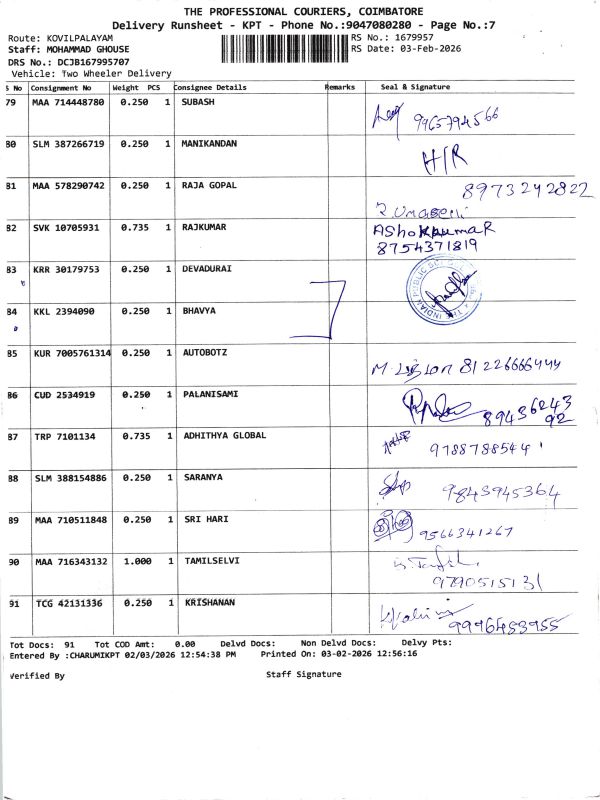 THE PROFESSIONAL COURIERS, COIMBATORE
Delivery Runsheet - KPT - Phone No.:9047080280 - Page No.:7
Route: KOVILPALAYAM
RS No.: 1679957
Staff: MOHAMMAD GHOUSE
RS Date: 03-Feb-2026
DRS No.: DCJB167995707
Vehicle: Two Wheeler Delivery
S No Consignment No Weight PCS Consignee Details Remarks Seal & Signature
79 MAA 714448780 0.250 1 SUBASH
9965794566
80 SLM 387266719 0.250 1 MANIKANDAN H/R
81 MAA 578290742 0.250 1 RAJA GOPAL 8973242822
82 SVK 10705931 0.735 1 RAJKUMAR ASHOKKUMAR
8754371819
83 KRR 30179753 0.250 1 DEVADURAI INDIAN PUBLIC
84 KKL 2394090 0.250 1 BHAVYA
85 KUR 7005761314 0.250 1 AUTOBOTZ
81 22666444
86 CUD 2534919 0.250 1 PALANISAMI
89436243
92
87 TRP 7101134 0.735 1 ADHITHYA GLOBAL
9788788544
88 SLM 388154886 0.250 1 SARANYA
9843945364
89 MAA 710511848 0.250 1 SRI HARI
9566341267
90 MAA 716343132 1.000 1 TAMILSELVI
9790515131
91 TCG 42131336 0.250 1 KRISHANAN
9996453955
Tot Docs: 91 Tot COD Amt: 0.00 Delvd Docs: Non Delvd Docs: Delvy Pts:
Entered By :CHARUMIKPT 02/03/2026 12:54:38 PM Printed On: 03-02-2026 12:56:16
Verified By Staff Signature